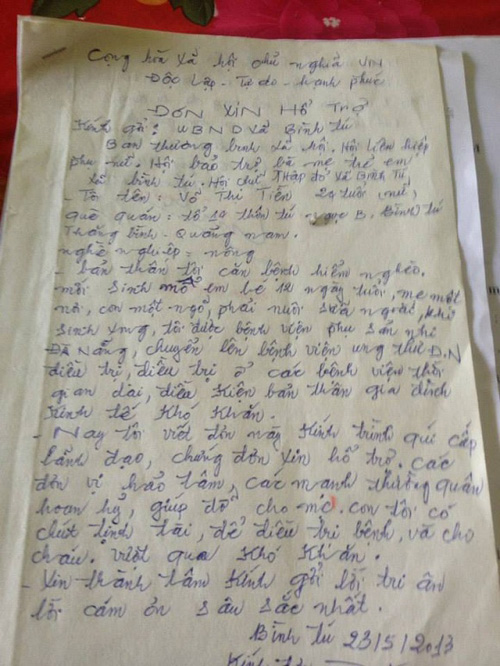 Cộng hòa xã hội chủ nghĩa VN
Độc Lập - Tự do - hạnh phúc
ĐƠN XIN HỔ TRỢ
Kính gởi: UBND xã Bình tú
Ban thương binh xã hội. Hội Liên hiệp
phụ nữ. Hội bảo trợ bà mẹ trẻ em
xã bình tú. Hội chữ THập đỏ xã Bình Tú
- Tôi tên: Võ Thị Tiến 29 tuổi (nữ)
quê quán: tổ 19 thôn tú ngọc B, Bình tú
Thăng bình - Quảng nam.
nghề nghiệp = nông
- bản thân tôi căn bệnh hiểm nghèo.
mới sinh một em bé 12 ngày tuổi, mẹ một
nơi, con một ngỏ, phải nuôi sữa ngoài, khi
sinh xong, tôi được bệnh viện phụ sản nhi
ĐÀ NẴng, chuyển lên bệnh viện ung thư Đ.N
điều trị, điều trị ở các bệnh viện thời
gian dài, điều kiện bản thân gia đình
kinh tế khó khăn.
- Nay tôi viết đơn này kính trình quí cấp
lãnh đạo, chứng đơn xin hổ trợ. các
đơn vị hảo tâm, các mạnh thường quân
hoan hỷ, giúp đở cho mẹ con tôi có
chút tịnh tài, để điều trị bệnh, và cho
cháu. vượt qua khó khăn.
- Xin thành tâm kính gởi lời tri ân
lời cám ơn sâu sắc nhất.
Bình tú 23/5/2013